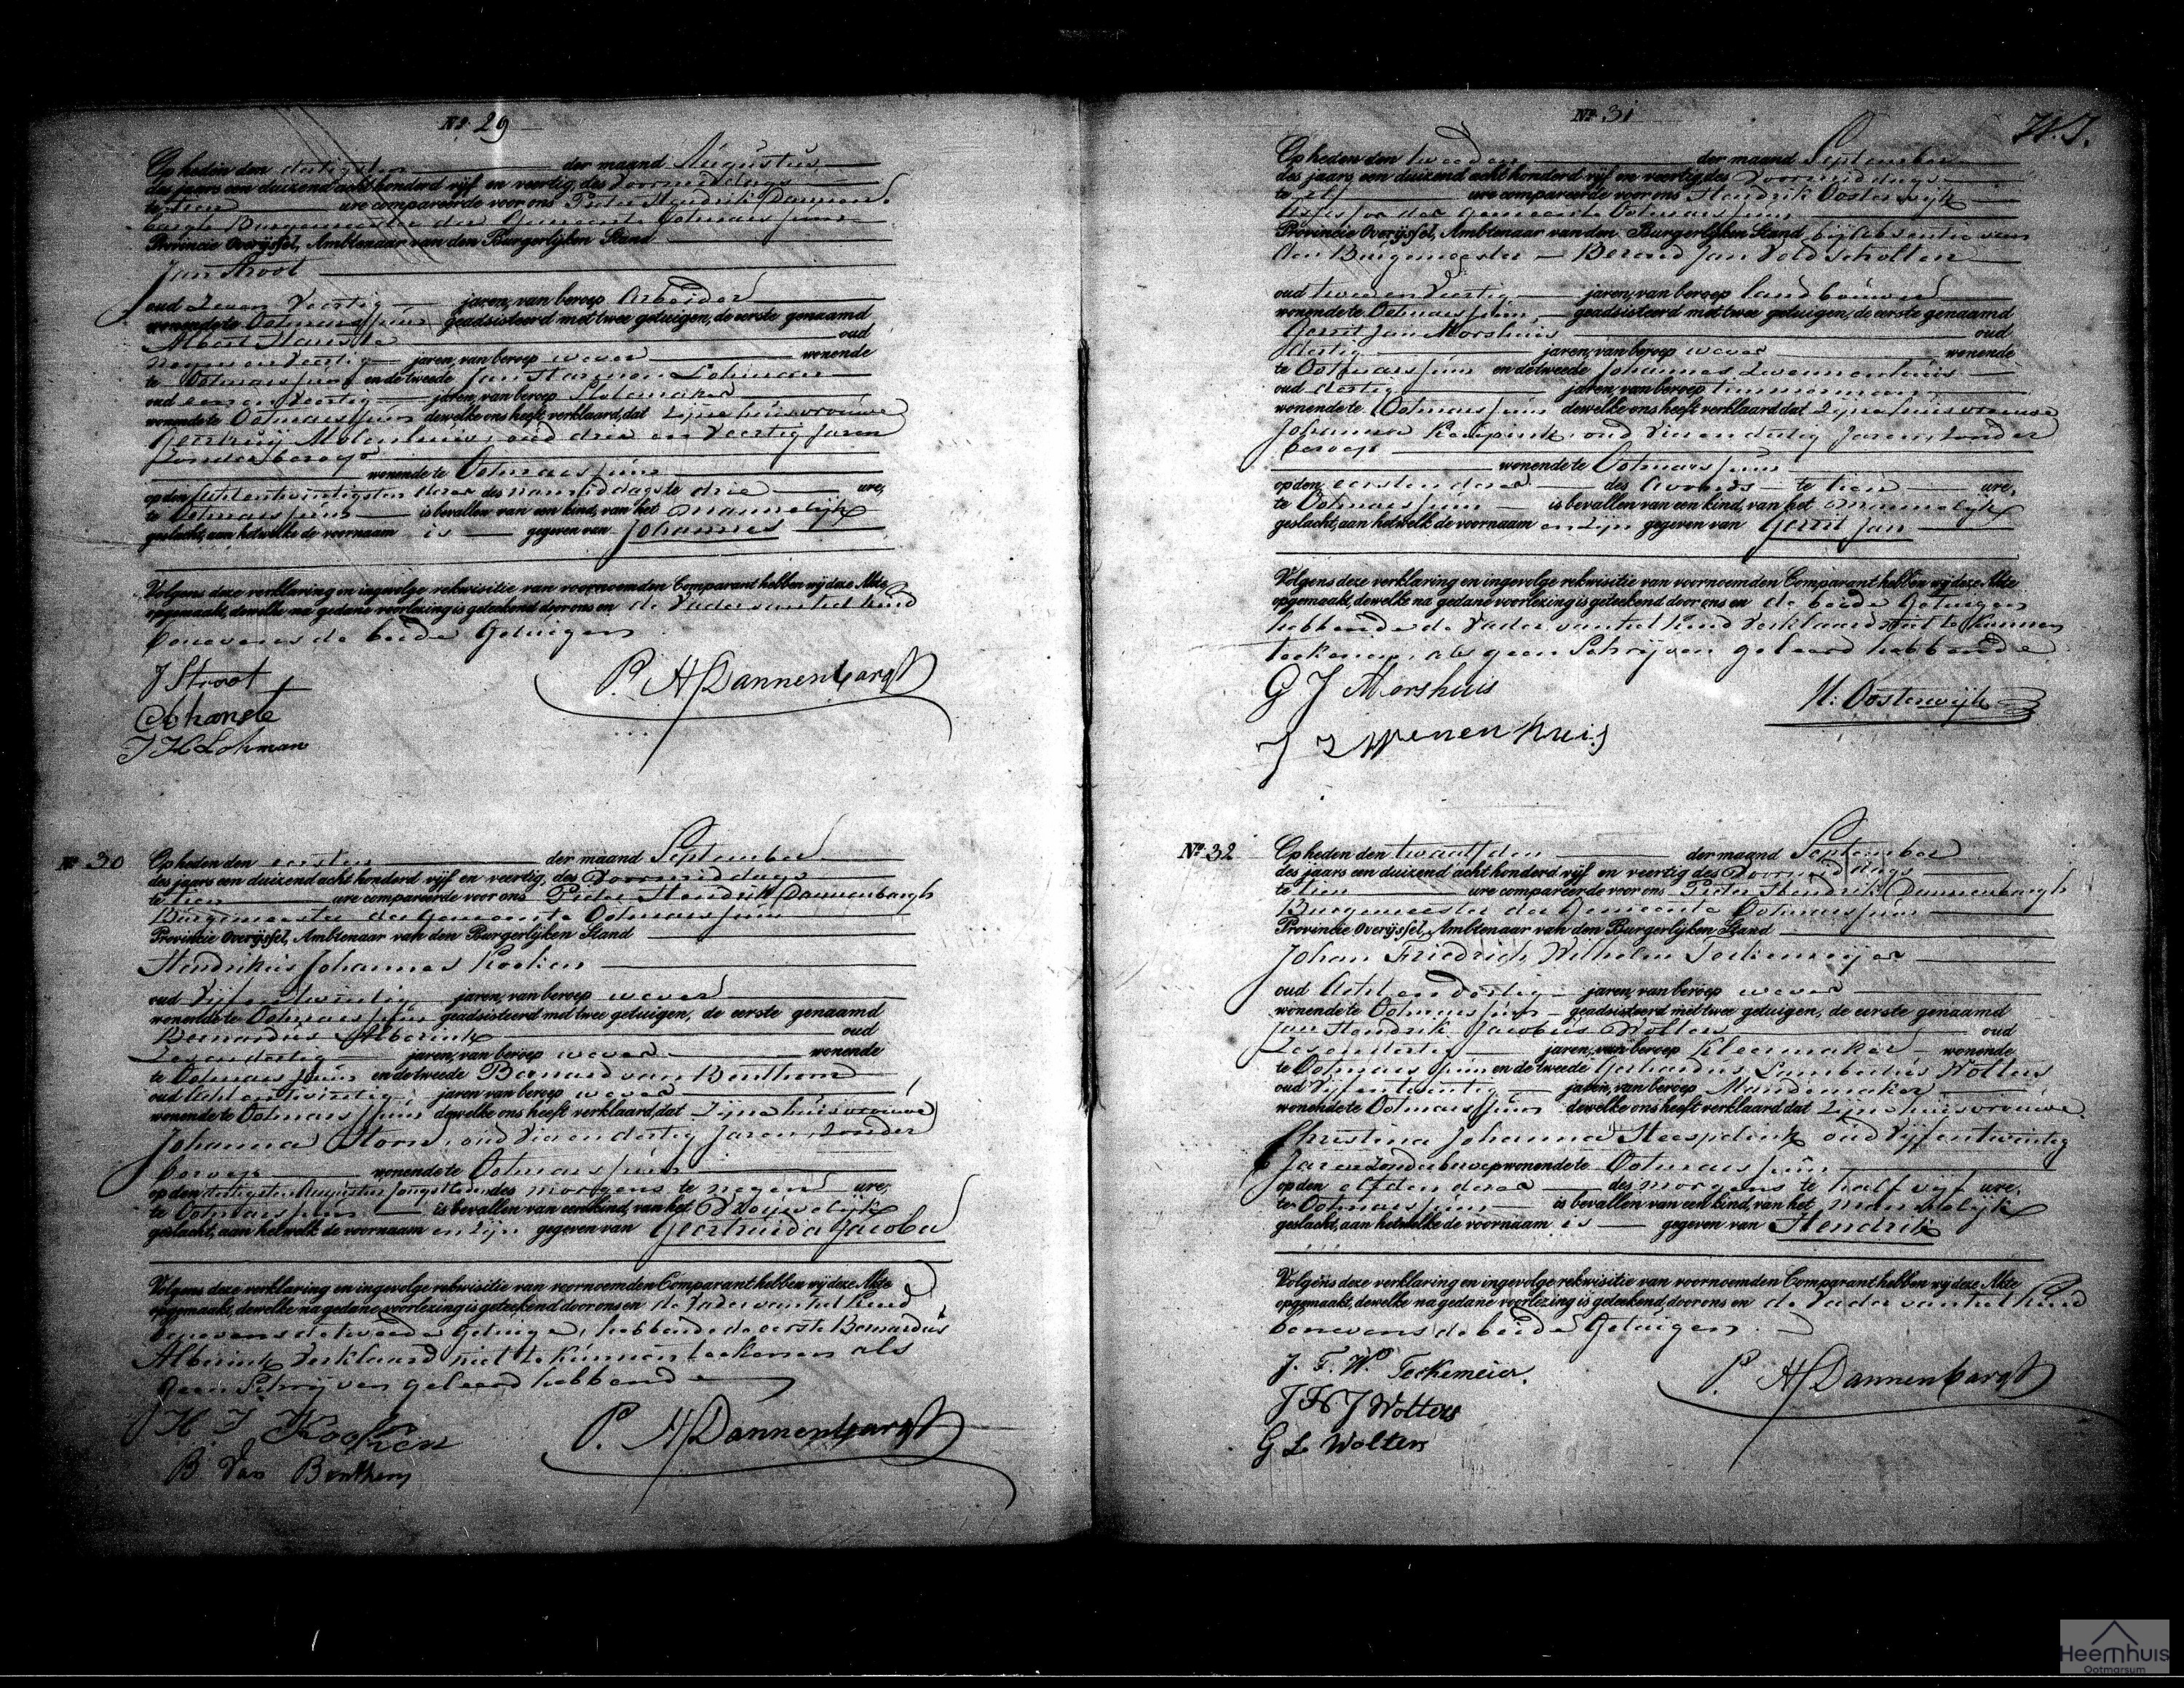 No 29
Op heden den dertigsten der maand Augustus
des jaars een duizend acht honderd vijf en veertig, des Voormiddags
te tien ure compareerde voor ons Pieter Hendrik Dannen-
bargh Burgemeester der Gemeente Ootmarssum
Provincie Overijssel, Ambtenaar van den Burgerlijken Stand
Jan Stroot
oud Zeven Veertig jaren, van beroep Arbeider
wonende te Ootmarssum geadsisteerd met twee getuigen, de eerste genaamd
Albert oud
negen en Veertig jaren, van beroep wever wonende
te Ootmarssum en de tweede Jan Harmen Lohman
oud een en Veertig jaren, van beroep Stelmaker
wonende te Ootmarssum dewelke ons heeft verklaard, dat Zijne huisvrouwe
Geertruij Molenhuis, oud drie en Veertig Jaren
Zonder beroep
wonende te Ootmarssum
op den Achtentwintigsten dezer des namiddags te drie ure,
te Ootmarssum is bevallen van een kind, van het mannelijk
geslacht, aan hetwelke de voornaam is gegeven van Johannes
Volgens deze verklaring en ingevolge rekwisitie van voornoemden Comparant hebben wij deze Akte
opgemaakt, dewelke na gedane voorlezing is geteekend door ons en de Vader van het kind
benevens de beide Getuigen
J Stroot
P. H Dannenbargh
J H Lohman
No 30
Op heden den eersten der maand September
des jaars een duizend acht honderd vijf en veertig, des Voormiddags
te tien ure compareerde voor ons Pieter Hendrik Dannenbargh
Burgemeester der Gemeente Ootmarssum
Provincie Overijssel, Ambtenaar van den Burgerlijken Stand
Hendrikus Johannes Kooken
oud Vijfentwintig jaren, van beroep wever
wonende te Ootmarssum geadsisteerd met twee getuigen, de eerste genaamd
Bernardus Alberink oud
Zesendertig jaren, van beroep wever wonende
te Ootmarssum en de tweede Bernard van Benthem
oud Achtentwintig jaren van beroep wever
wonende te Ootmarssum dewelke ons heeft verklaard, dat Zijne huisvrouwe
Johanna Horn, oud Vierendertig Jaren, Zonder
beroep wonende te Ootmarssum
op den dertigsten Augustus Jongstleden des morgens te negen ure,
te Ootmarssum is bevallen van een kind, van het Vrouwelijk
geslacht, aan hetwelk de voornaam en zijn gegeven van Geertruida Jacoba
Volgens deze verklaring en ingevolge rekwisitie van voornoemden Comparant hebben wij deze Akte
opgemaakt, dewelke na gedane voorlezing is geteekend door ons en de Vader van het Kind
benevens de tweede Getuige, hebbende de eerste Bernardus
Alberink Verklaard niet te kunnen teekenen als
geen Schrijven geleerd hebbende
H J Kooken
P. H Dannenbargh
B Van Benthem
No 31
Op heden den tweeden der maand September
des jaars een duizend acht honderd vijf en veertig, des Voormiddags
te elf ure compareerde voor ons Hendrik Oosterwijk
Assessor der Gemeente Ootmarssum
Provincie Overijssel, Ambtenaar van den Burgerlijken Stand bij absentie van
den Burgemeester Berend Jan Voldscholten
oud twee en Veertig jaren, van beroep landbouwer
wonende te Ootmarssum, geadsisteerd met twee getuigen, de eerste genaamd
Gerrit Jan Morshuis oud
dertig jaren, van beroep wever wonende
te Ootmarssum en de tweede Johannes Zwenenhuis
oud dertig jaren, van beroep timmerman
wonende te Ootmarssum dewelke ons heeft verklaard dat Zijne huisvrouwe
Johanna oud Vierendertig Jaren, Zonder
beroep
wonende te Ootmarssum
op den eersten dezer des Avonds te tien ure,
te Ootmarssum is bevallen van een kind, van het mannelijk
geslacht, aan hetwelk de voornaam en zijn gegeven van Gerrit Jan
Volgens deze verklaring en ingevolge rekwisitie van voornoemden Comparant hebben wij deze Akte
opgemaakt, dewelke na gedane voorlezing is geteekend door ons en de beide Getuigen
hebbende de Vader van het kind Verklaard niet te kunnen
teekenen, als geen Schrijven geleerd hebbende
G J Morshuis
H: Oosterwijk
J Zwenenhuis
No 32
Op heden den twaalfden der maand September
des jaars een duizend acht honderd vijf en veertig des Voormiddags
te tien ure compareerde voor ons Pieter Hendrik Dannenbargh
Burgemeester der Gemeente Ootmarssum
Provincie Overijssel, Ambtenaar van den Burgerlijken Stand
Johan Friedrich Wilhelm
oud Achtendertig jaren, van beroep wever
wonende te Ootmarssum geadsisteerd met twee getuigen, de eerste genaamd
Jan Hendrik Jacobus Wolters oud
Zesendertig jaren, van beroep Kleermaker wonende
te Ootmarssum en de tweede Gerhardus Lambertus Wolters
oud Vijfentwintig jaren, van beroep Mandemaker
wonende te Ootmarssum dewelke ons heeft verklaard dat Zijne huisvrouwe
Christina Johanna Heespelink oud Vijfentwintig
Jaren Zonder beroep wonende te Ootmarssum
op den elfden dezer des morgens te half vijf ure,
te Ootmarssum is bevallen van een kind, van het mannelijk
geslacht, aan hetwelke de voornaam is gegeven van Hendrik
Volgens deze verklaring en ingevolge rekwisitie van voornoemden Comparant hebben wij deze Akte
opgemaakt, dewelke na gedane voorlezing is geteekend door ons en de Vader van het Kind
benevens de beide Getuigen
J. F. W. Teckemeier.
P. H Dannenbargh
J H J Wolters
G L Wolters
Heemhuis
Ootmarsum